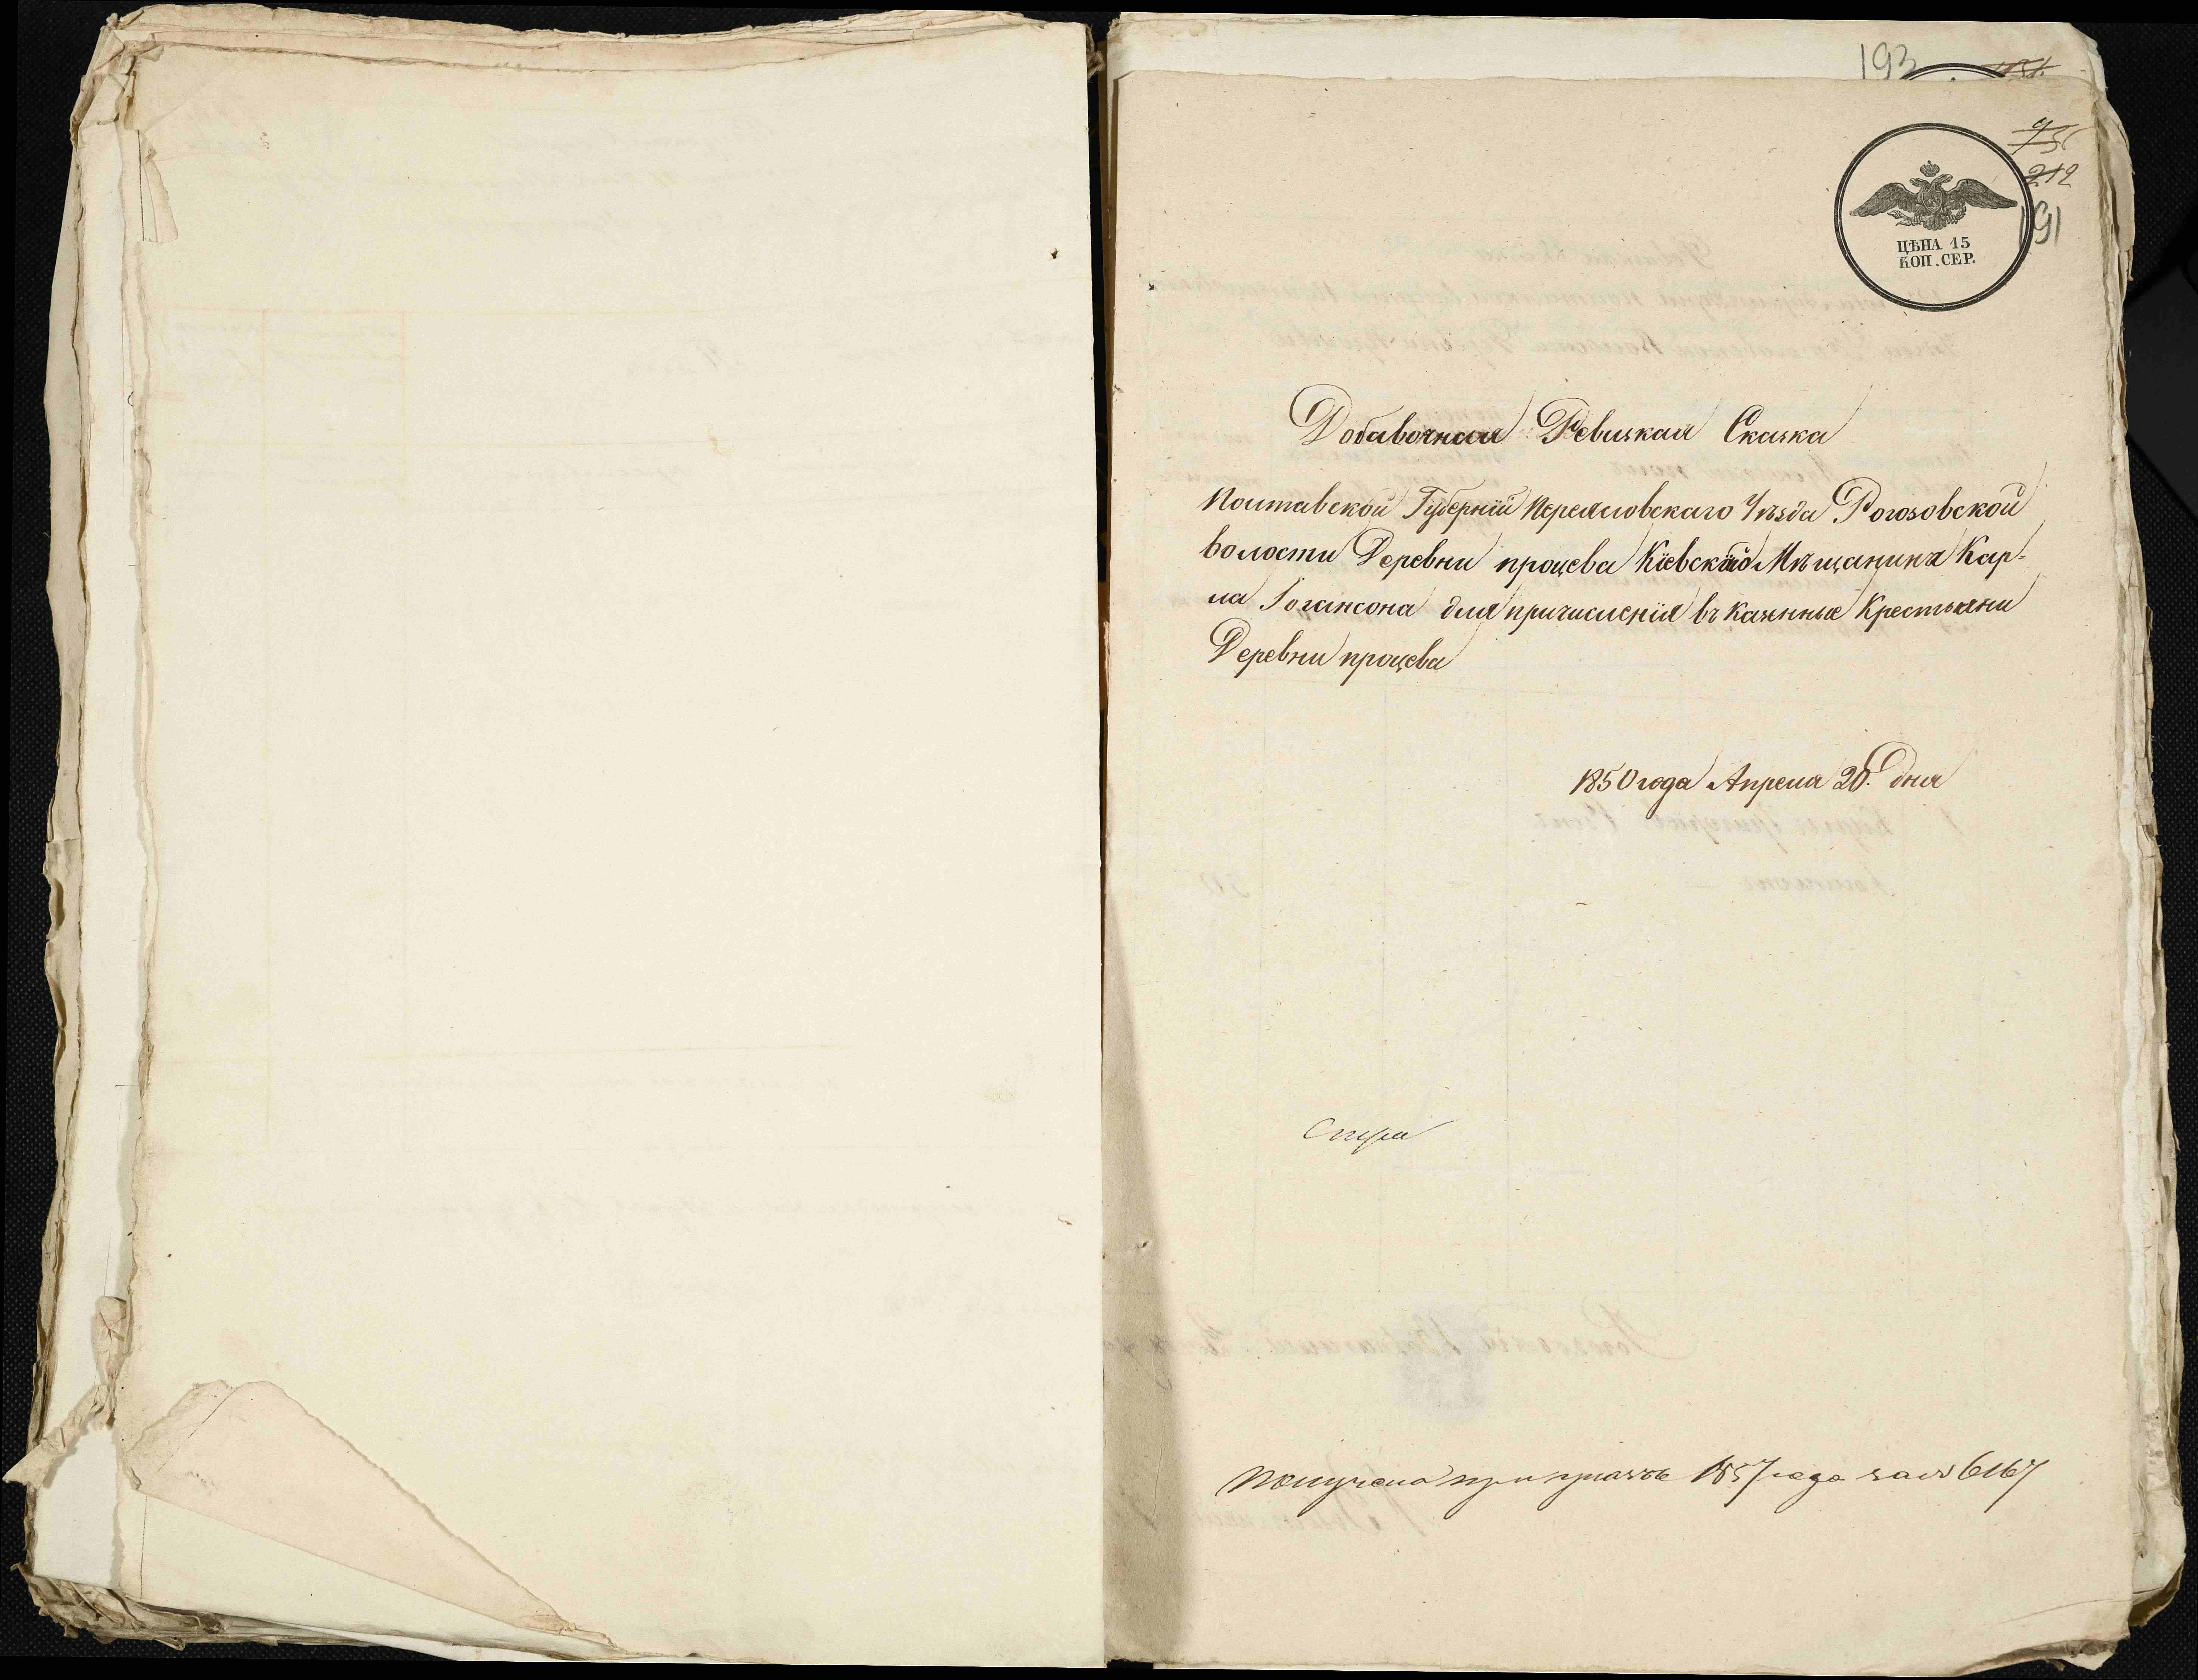 193
212
91
ЦѢНА 15
КОП. СЕР.
Добавочная Ревизкая Сказка
Полтавской Губерніи Переясловскаго Уѣзда Рогозовской
волости Деревни процева Кіевскаго Мѣщанина Кар-
ла Іогансона для причисленія въ казенные Крестьяни
Деревни процева
1850 года Апреля 20. дня
получена при указѣ 1857 года за № 6167